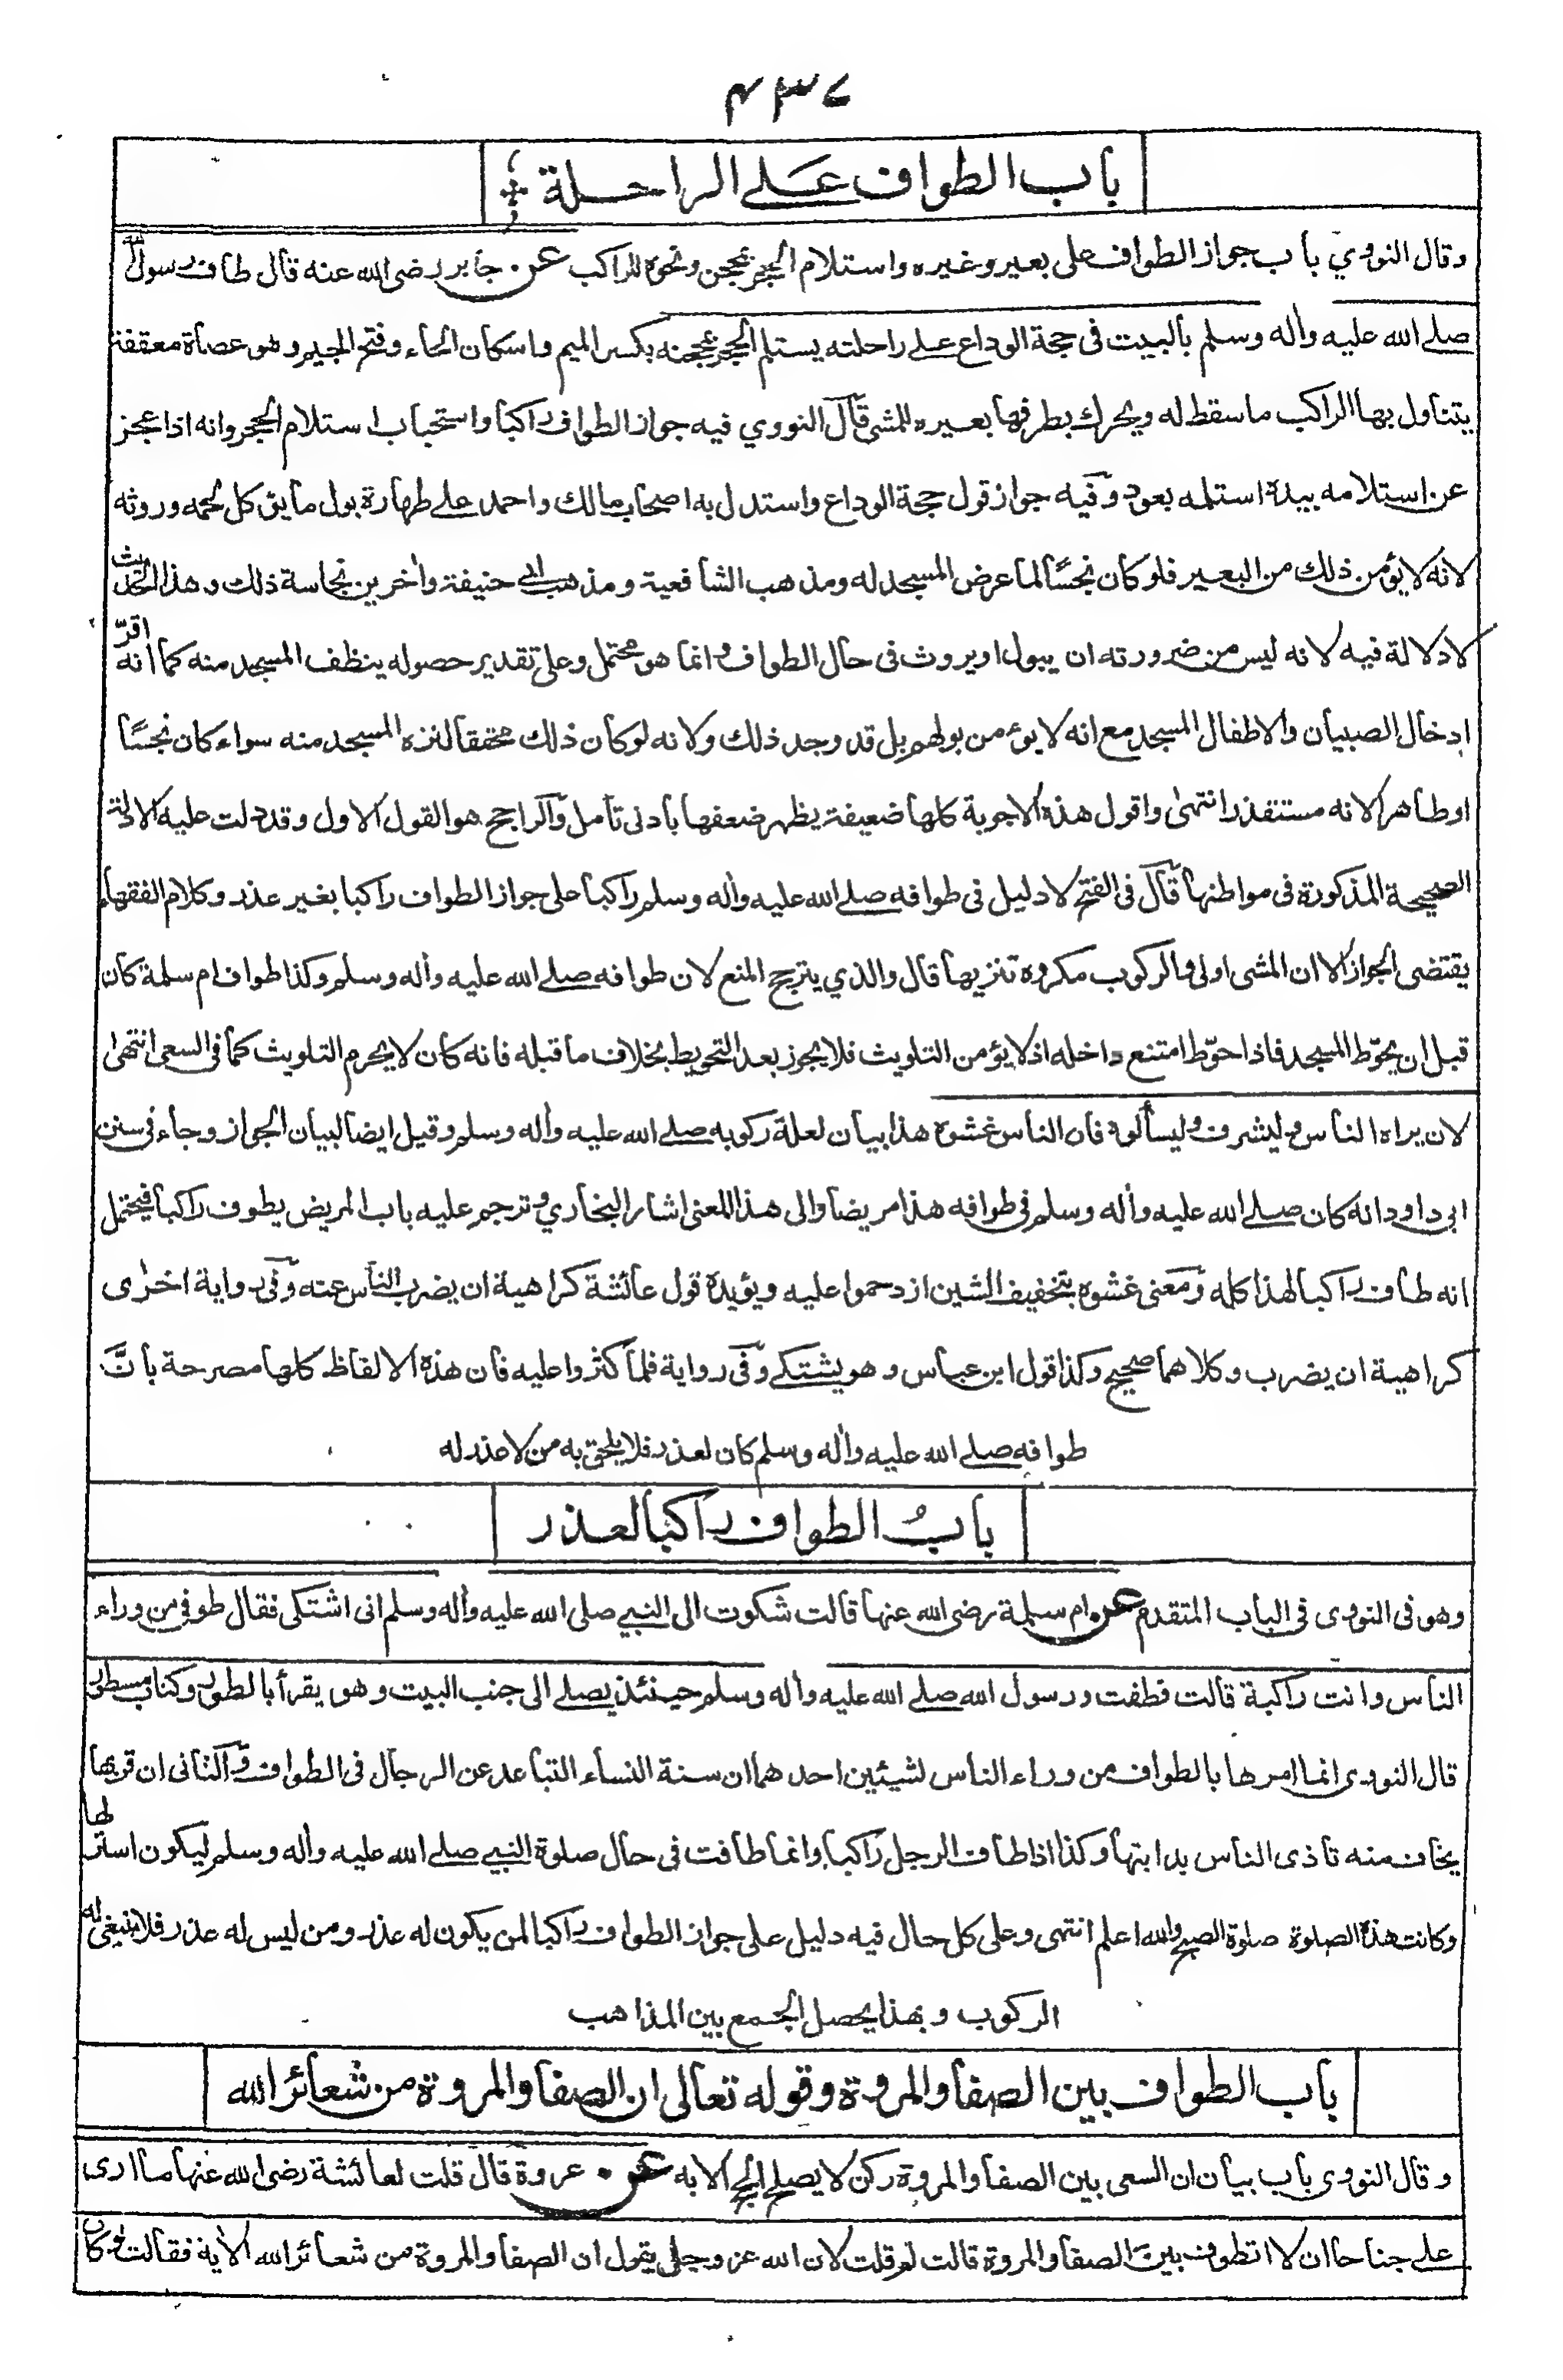 ۴۳۷
باب الطواف علے الراحلة
وقال النووي باب جواز الطواف على بعير وغيره واستلام الحجر بمحجن ونحوه للراكب عن جابر رضى الله عنه قال طاف رسول الله
صلے الله عليه واله وسلم بالبيت فى حجة الوداع علے راحلته يستلم الحجر بمحجنه بكسر الميم واسكان الحاء وفتح الجيم وهو عصاة معقفة
يتناول بها الراكب ما سقط له ويحرك بطرفها بعيره للمشى قال النووي فيه جواز الطواف راكبا واستحباب استلام الحجر وانه اذا عجز
عن استلامه بيده استلمه بعود وفيه جواز قول حجة الوداع واستدل به اصحاب مالك واحمد علے طهارة بول ما يؤكل لحمه وروثه
لانه لا يؤمن ذلك من البعير فلو كان نجسًا لما عرض المسجد له ومذهب الشافعية ومذهب ابى حنيفة واخرين نجاسة ذلك وهذا الحديث
لا دلالة فيه لانه ليس من ضرورته ان يبول او يروث فى حال الطواف وانما هو محتمل وعلى تقدير حصوله ينظف المسجد منه كما انه اقرّ
ادخال الصبيان والاطفال المسجد مع انه لا يؤمن بولهم بل قد وجد ذلك ولانه لو كان ذلك محققا لنزه المسجد منه سواء كان نجسًا
او طاهرا لانه مستقذر انتهى واقول هذه الاجوبة كلها ضعيفة يظهر ضعفها بادنى تأمل والراجح هو القول الاول وقد دلت عليه الادلة
الصحيحة المذكورة فى مواطنها قال فى الفتح لا دليل فى طوافه صلے الله عليه واله وسلم راكبا على جواز الطواف راكبا بغير عذر وكلام الفقهاء
يقتضى الجواز الا ان المشى اولى والركوب مكروه تنزيها قال والذي يترجح المنع لان طوافه صلے الله عليه واله وسلم وكذا طواف ام سلمة كان
قبل ان يحوّط المسجد فاذا حوّط امتنع داخله اذ لا يؤمن التلويث فلا يجوز بعد التحويط بخلاف ما قبله فانه كان لا يحرم التلويث كما فى السعى انتهى
لان يراه الناس وليشرف وليسألوه فان الناس غشوه هذا بيان لعلة ركوبه صلے الله عليه واله وسلم وقيل ايضا لبيان الجواز وجاء فى سنن
ابى داود انه كان صلے الله عليه واله وسلم فى طوافه هذا مريضا والى هذا المعنى اشار البخاري وترجم عليه باب المريض يطوف راكبا فيحتمل
انه طاف راكبا لهذا كله ومعنى غشوه بتخفيف الشين ازدحموا عليه ويؤيده قول عائشة كراهية ان يضرب الناس عنه وفى رواية اخرى
كراهية ان يضرب وكلاهما صحيح وكذا قول ابن عباس وهو يشتكے وفى رواية فلما كثروا عليه فان هذه الالفاظ كلها مصرحة بانَّ
طوافه صلے الله عليه واله وسلم كان لعذر فلا يلحق به من لا عذر له
بابُ الطواف راكبا لعذر
وهو فى النووى فى الباب المتقدم عن ام سلمة رضى الله عنها قالت شكوت الى النبي صلى الله عليه واله وسلم انى اشتكى فقال طوفى من وراء
الناس وانت راكبة قالت فطفت ورسول الله صلے الله عليه واله وسلم حينئذ يصلے الى جنب البيت وهو يقرأ بالطور وكتاب مسطور
قال النووى انما امرها بالطواف من وراء الناس لشيئين احدهما ان سنة النساء التباعد عن الرجال فى الطواف والثانى ان قربها
يخاف منه تاذى الناس بدابتها وكذا اذا طاف الرجل راكبا وانما طافت فى حال صلوة النبي صلے الله عليه واله وسلم ليكون استر لها
وكانت هذه الصلوة صلوة الصبح والله اعلم انتهى وعلى كل حال فيه دليل على جواز الطواف راكبا لمن يكون له عذر ومن ليس له عذر فلا ينبغى له
الركوب وبهذا يحصل الجمع بين المذاهب
باب الطواف بين الصفا والمروة وقوله تعالى ان الصفا والمروة من شعائر الله
وقال النووى باب بيان ان السعى بين الصفا والمروة ركن لا يصلح الحج الا به عن عروة قال قلت لعائشة رضى الله عنها ما ارى
علے جناحا ان لا اتطوف بين الصفا والمروة قالت لم قلت لان الله عز وجل يقول ان الصفا والمروة من شعائر الله الاية فقالت لو كان